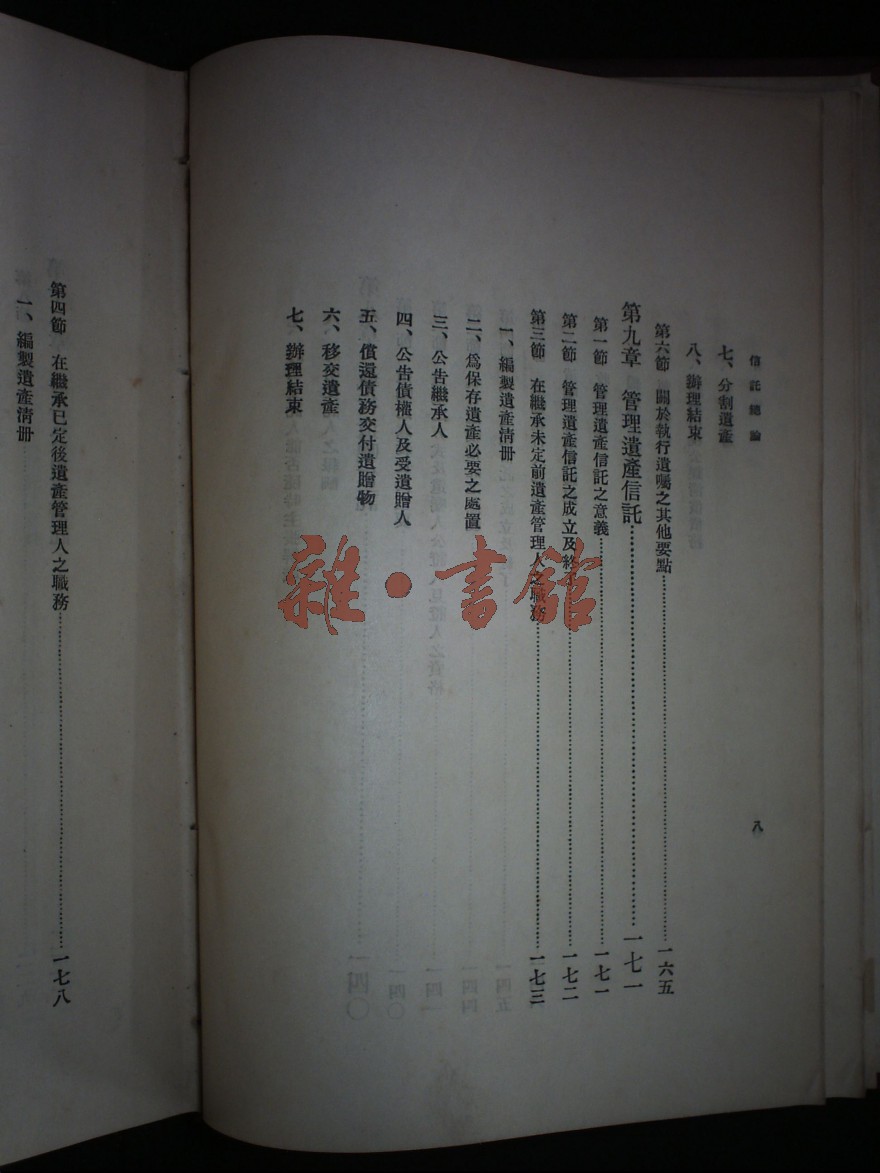 信託總論
八
七、分割遺產
八、辦理結束
第六節 關於執行遺囑之其他要點……一六五
第九章 管理遺產信託……一七一
第一節 管理遺產信託之意義……一七一
第二節 管理遺產信託之成立及終……一七二
第三節 在繼承未定前遺產管理人之職務……一七三
一、編製遺產清册
二、爲保存遺產必要之處置
三、公告繼承人
四、公告債權人及受遺贈人
五、償還債務交付遺贈物
六、移交遺產
七、辦理結束
第四節 在繼承已定後遺產管理人之職務……一七八
一、編製遺產清册
雜·書館